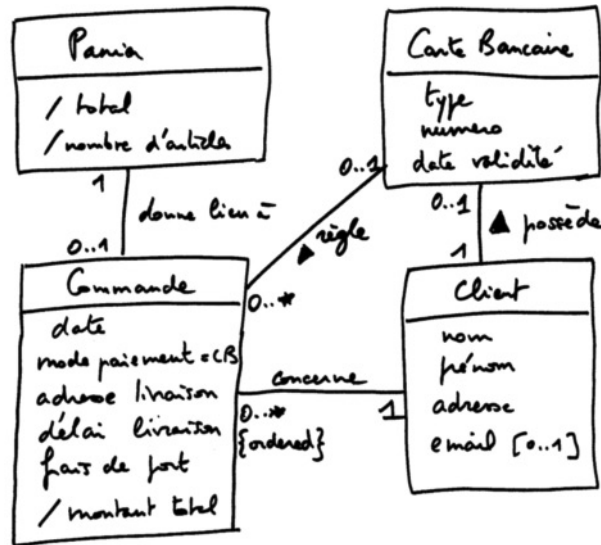 Panier
/ total
/ nombre d'articles
1
donne lieu à
0..1
Carte Bancaire
type
numero
date validité
0..1
règle
0..*
0..1
possède
1
Commande
date
mode paiement = CB
adresse livraison
délai livraison
frais de port
/ montant total
concerne
0..*
{ordered}
1
Client
nom
prénom
adresse
email [0..1]